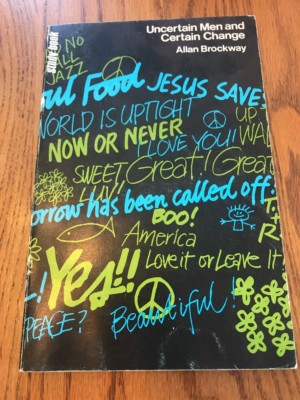 study book
Uncertain Men and
Certain Change
Allan Brockway
NO
ALL
JAZZ
out Food
JESUS SAVES
WORLD IS UPTIGHT
UP
NOW OR NEVER
I LOVE YOU!!
SWEET
Great! Great
LUV!
orrow has been called off.
BOO!
T.+
R
America
Love it or Leave It
L!
Yes!!
PEACE?
Beautiful!